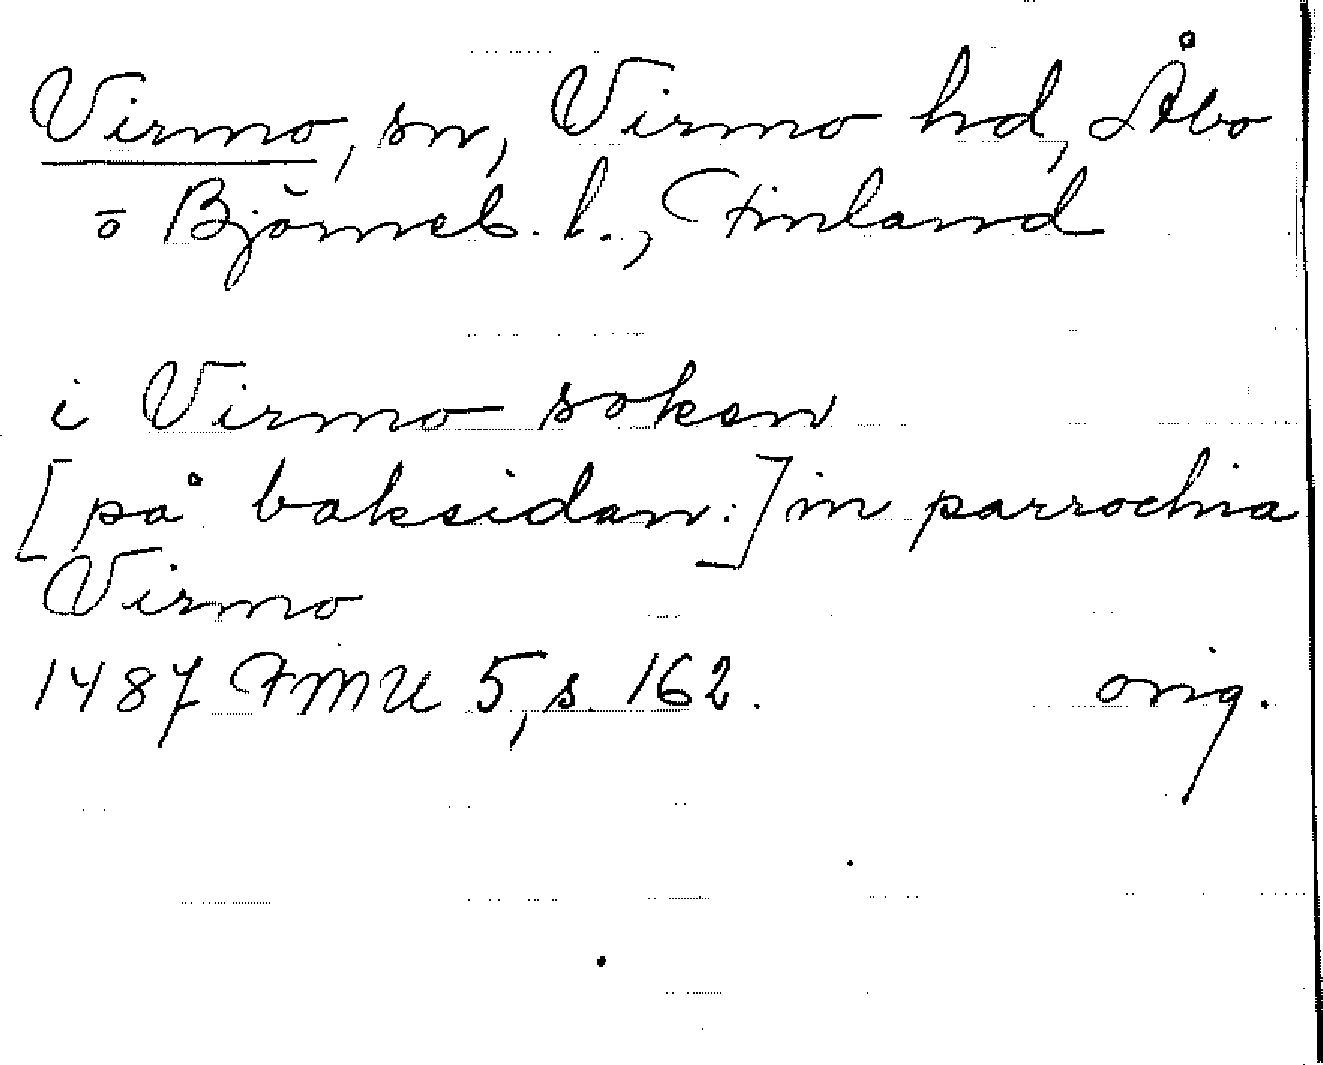 Virmo, sn, Virmo hd, Åbo
o Björneb. l., Finland
i Virmo soken
[på baksidan:] in parrochia
Virmo
1487 FMU 5, s. 162. orig.